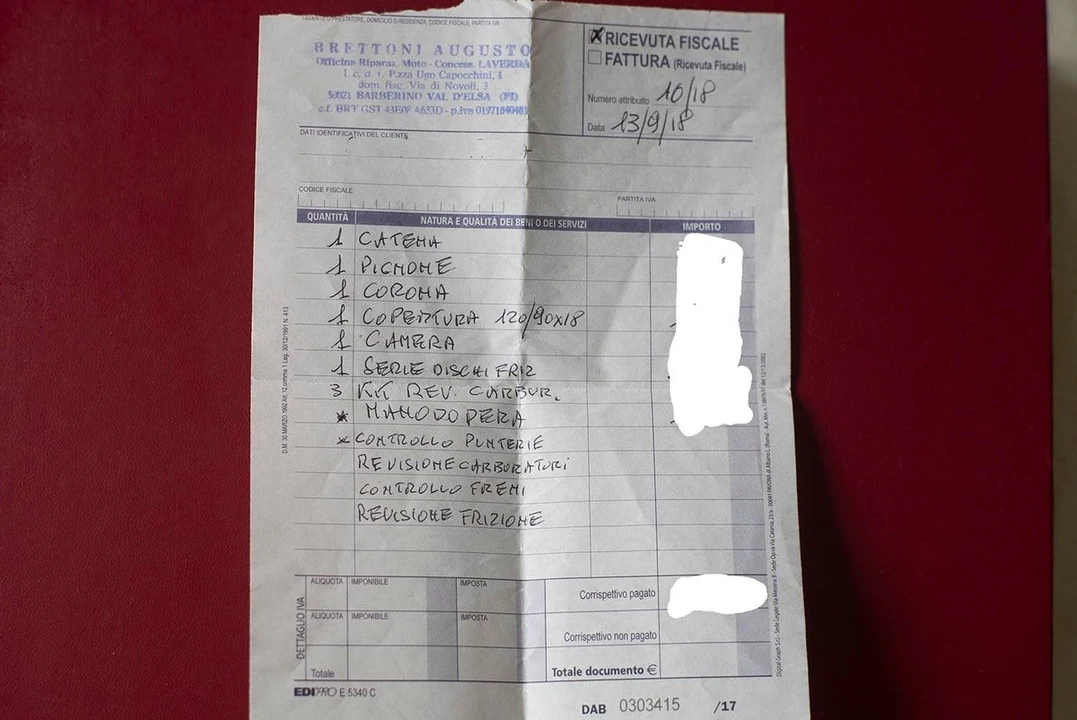 CEDENTE O PRESTATORE, DOMICILIO O RESIDENZA, CODICE FISCALE, PARTITA IVA
BRETTONI AUGUSTO
Officina Riparaz. Moto - Concess. LAVERDA
l. e. d. t. P.zza Ugo Capocchini, 1
dom. fisc. Via di Novoli, 3
50021 BARBERINO VAL D'ELSA (FI)
c.f. BRT GST 43E08 A633D - p.iva
X RICEVUTA FISCALE
FATTURA (Ricevuta Fiscale)
Numero attribuito 10/18
Data 13/9/18
DATI IDENTIFICATIVI DEL CLIENTE
CODICE FISCALE
PARTITA IVA
QUANTITÀ NATURA E QUALITÀ DEI BENI O DEI SERVIZI IMPORTO
1 CATENA
1 PIGNONE
1 CORONA
1 COPERTURA 120/90X18
1 CAMERA
1 SERIE DISCHI FRIZ
3 KIT REV. CARBUR.
* MANODOPERA
* CONTROLLO PUNTERIE
REVISIONE CARBURATORI
CONTROLLO FRENI
REVISIONE FRIZIONE
DETTAGLIO IVA
ALIQUOTA IMPONIBILE IMPOSTA
Corrispettivo pagato
ALIQUOTA IMPONIBILE IMPOSTA
Corrispettivo non pagato
Totale
Totale documento €
EDIPRO E 5340 C
DAB 0303415 /17